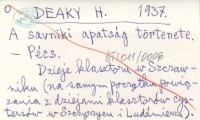 DEAKY H. 1937.
A savniki apatság története.
- Pécs.
Dzieje klasztoru w Szczaw-
niku (na samym początku powią-
zania z dziejami klasztorów cy-
tersów w Szczyrzycu i Ludźmierzu).